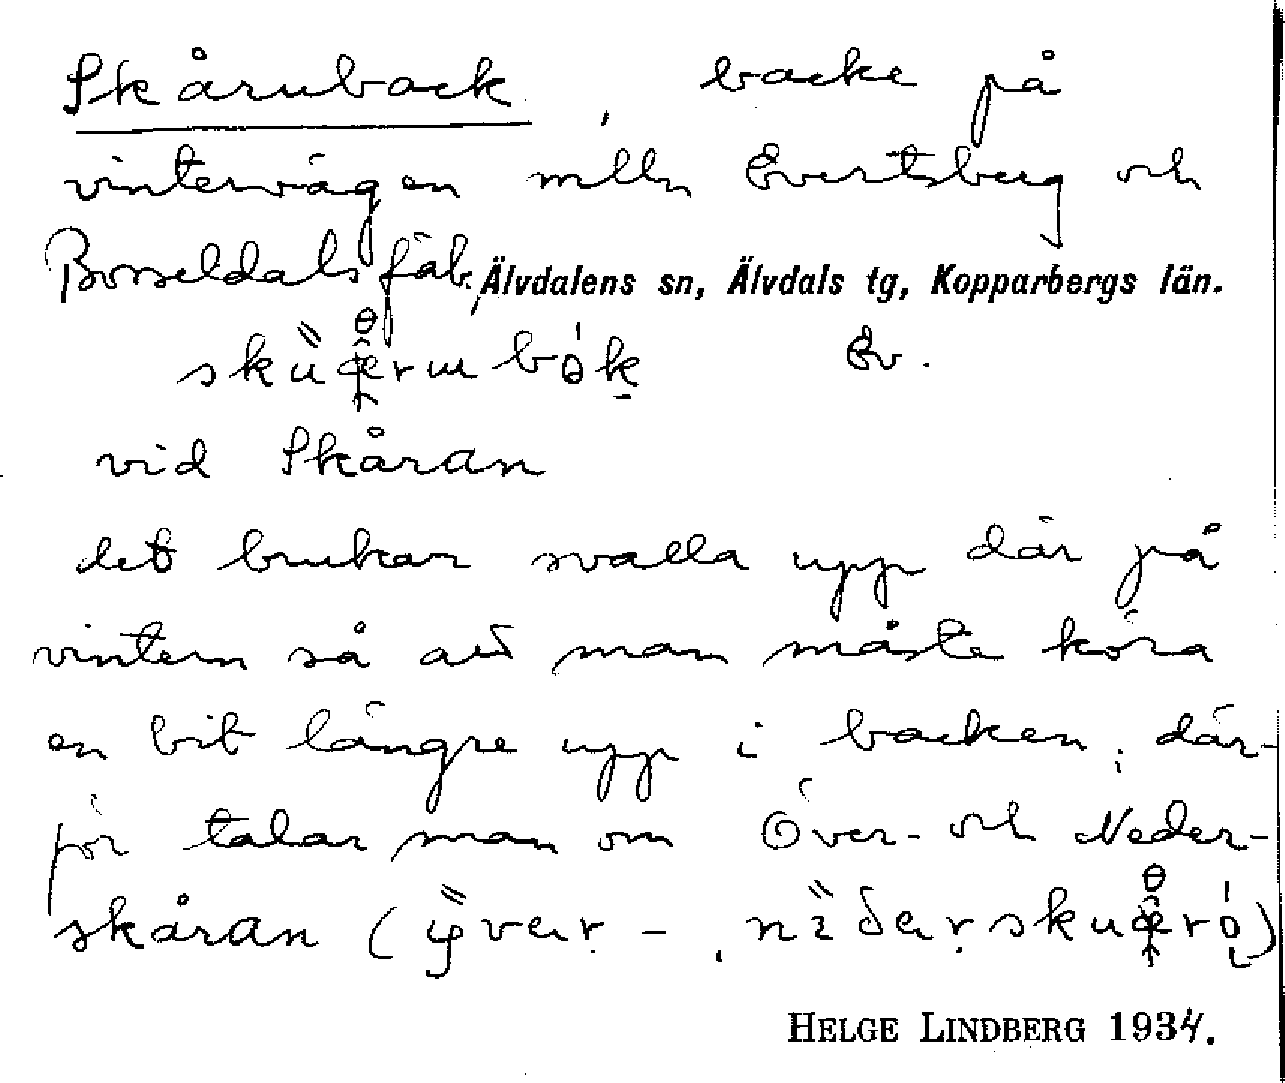 Skåruback, backe på
vintervägen mlln Evertsberg och
Bosseldals fäb. Älvdalens sn, Älvdals tg, Kopparbergs län.
Ev.
vid Skåran
det brukar svalla upp där på
vintern så att man måste köra
en bit längre upp i backen; där-
för talar man om Över- och Neder-
skåran
HELGE LINDBERG 1934.